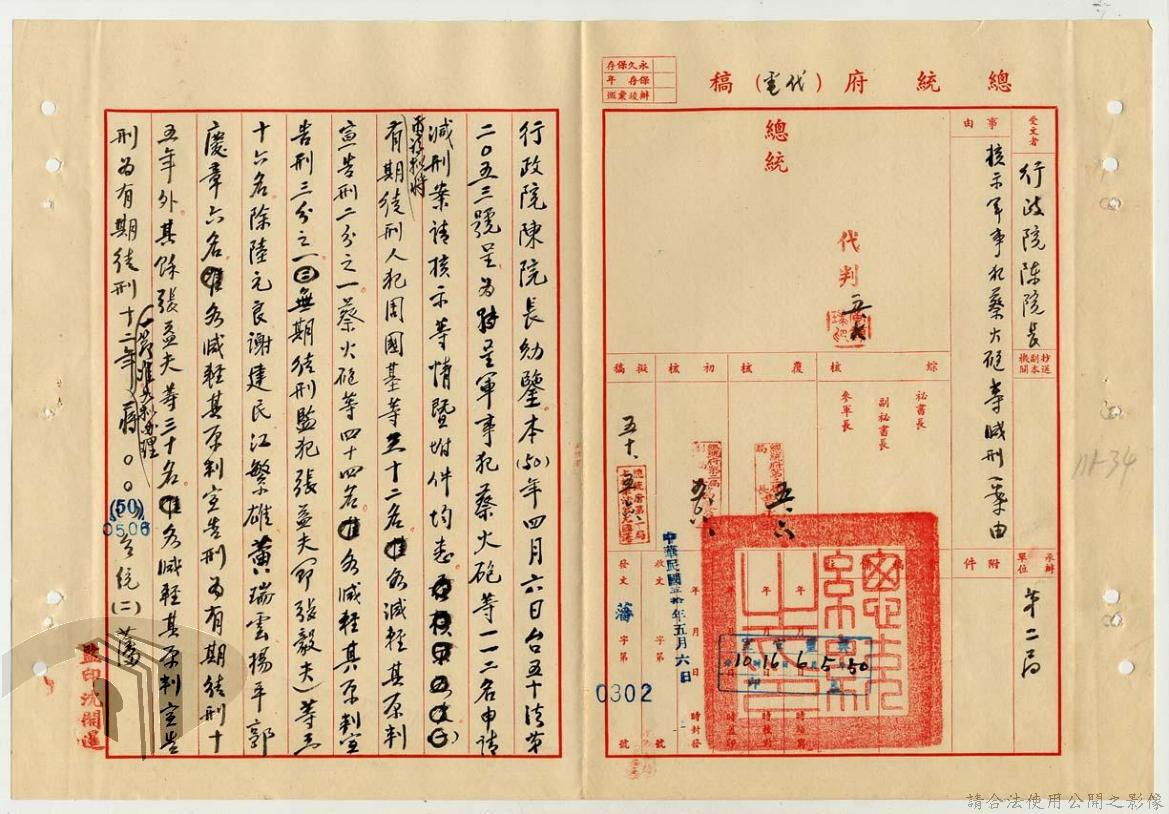 總統府(代電)稿
永久保存
保存 年
受文者
行政院陳院長
抄送副本機關
事由
核示軍事犯蔡火砲等減刑一案由
承辦單位
第二局
附件
總統
代判
五六
綜核
秘書長
副秘書長
參軍長
覆核
五.六
初核
擬稿
中華民國五十年五月六日
50 5 6 16 10
發文 字第 0302 號
收文 字第 號
年 月 日 時封發
行政院陳院長勛鑒本(50)年四月六日台五十法字第
二〇五三號呈為轉呈軍事犯蔡火砲等一一二名申請
減刑案請核示等情暨附件均悉
茲核將
有期徒刑人犯周國基等三十二名准各減輕其原判
宣告刑二分之一蔡火砲等四十四名准各減輕其原判宣
告刑三分之一無期徒刑監犯張益夫(即張毅夫)等三
十六名除陸元良謝建民江繁雄黃瑞雲楊平郭
慶章六名准各減輕其原判宣告刑為有期徒刑十
五年外其餘張益夫等三十名准各減輕其原判宣告
刑為有期徒刑十二年蔣〇〇(50)0506台統(二)藩
監印沈開運
111-34
請合法使用公開之影像